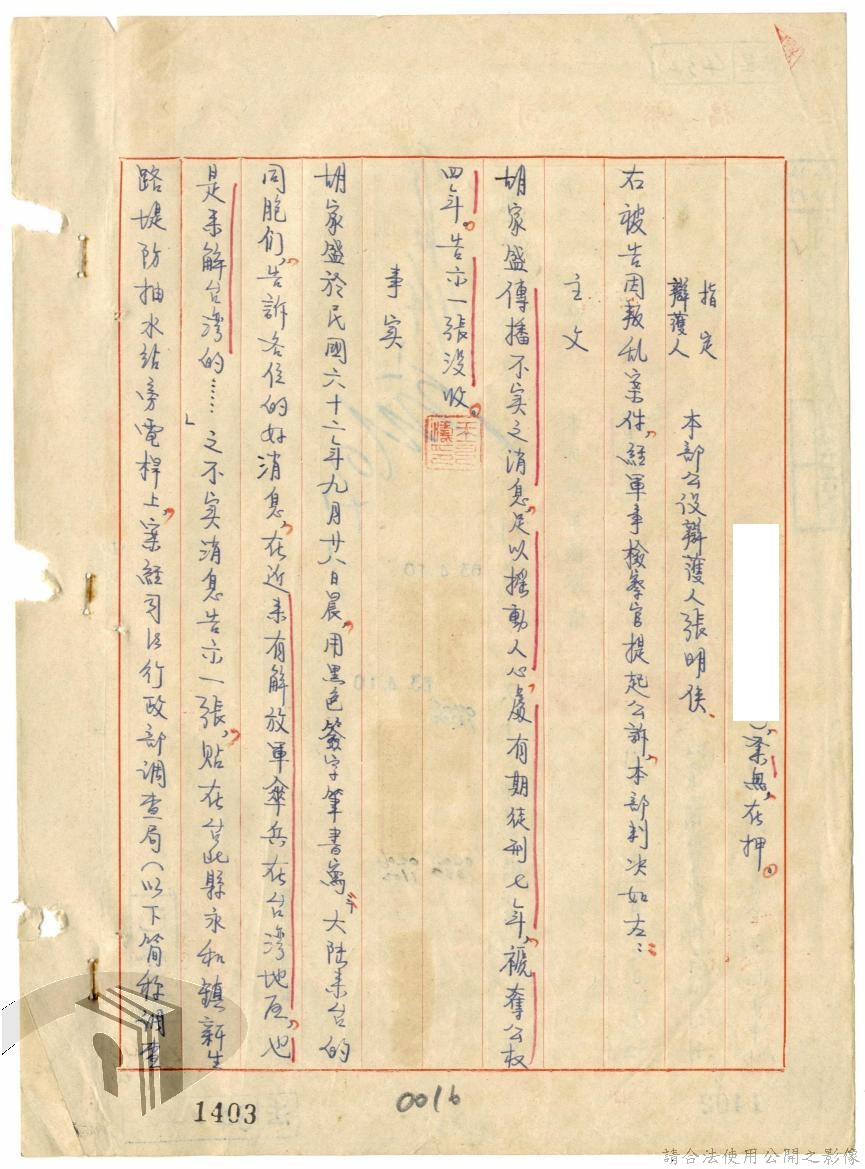 ），業無，在押。
指定
辯護人　本部公設辯護人張明俠、
右被告因叛乱案件，經軍事檢察官提起公訴，本部判决如左：
主文
胡家盛傳播不实之消息，足以摇動人心，處有期徒刑七年，褫奪公权
四年。告示一張没收。
事实
胡家盛於民國六十二年九月廿八日晨，用黑色簽字筆書寫「大陆来台的
同胞们，告訴各位的好消息，在近来有解放軍傘兵在台湾地区，也
是来解台湾的……」之不实消息告示一張，貼在台北縣永和鎮新生
路堤防抽水站旁電桿上，案經司法行政部調查局（以下简称調查
1403
0016
請合法使用公開之影像